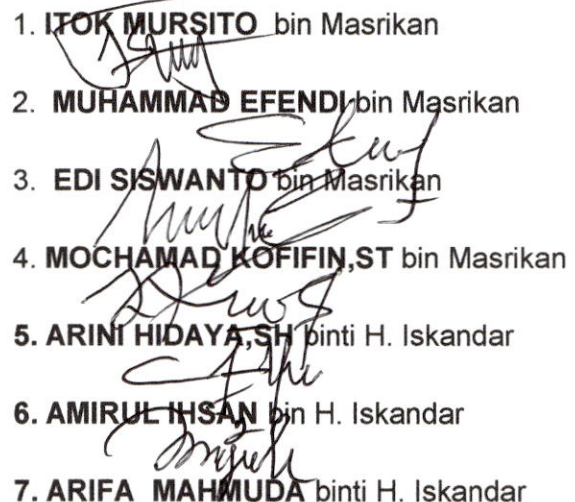 1. ITOK MURSITO bin Masrikan
2. MUHAMMAD EFENDI bin Masrikan
3. EDI SISWANTO bin Masrikan
4. MOCHAMAD KOFIFIN,ST bin Masrikan
5. ARINI HIDAYA,SH binti H. Iskandar
6. AMIRUL IHSAN bin H. Iskandar
7. ARIFA MAHMUDA binti H. Iskandar